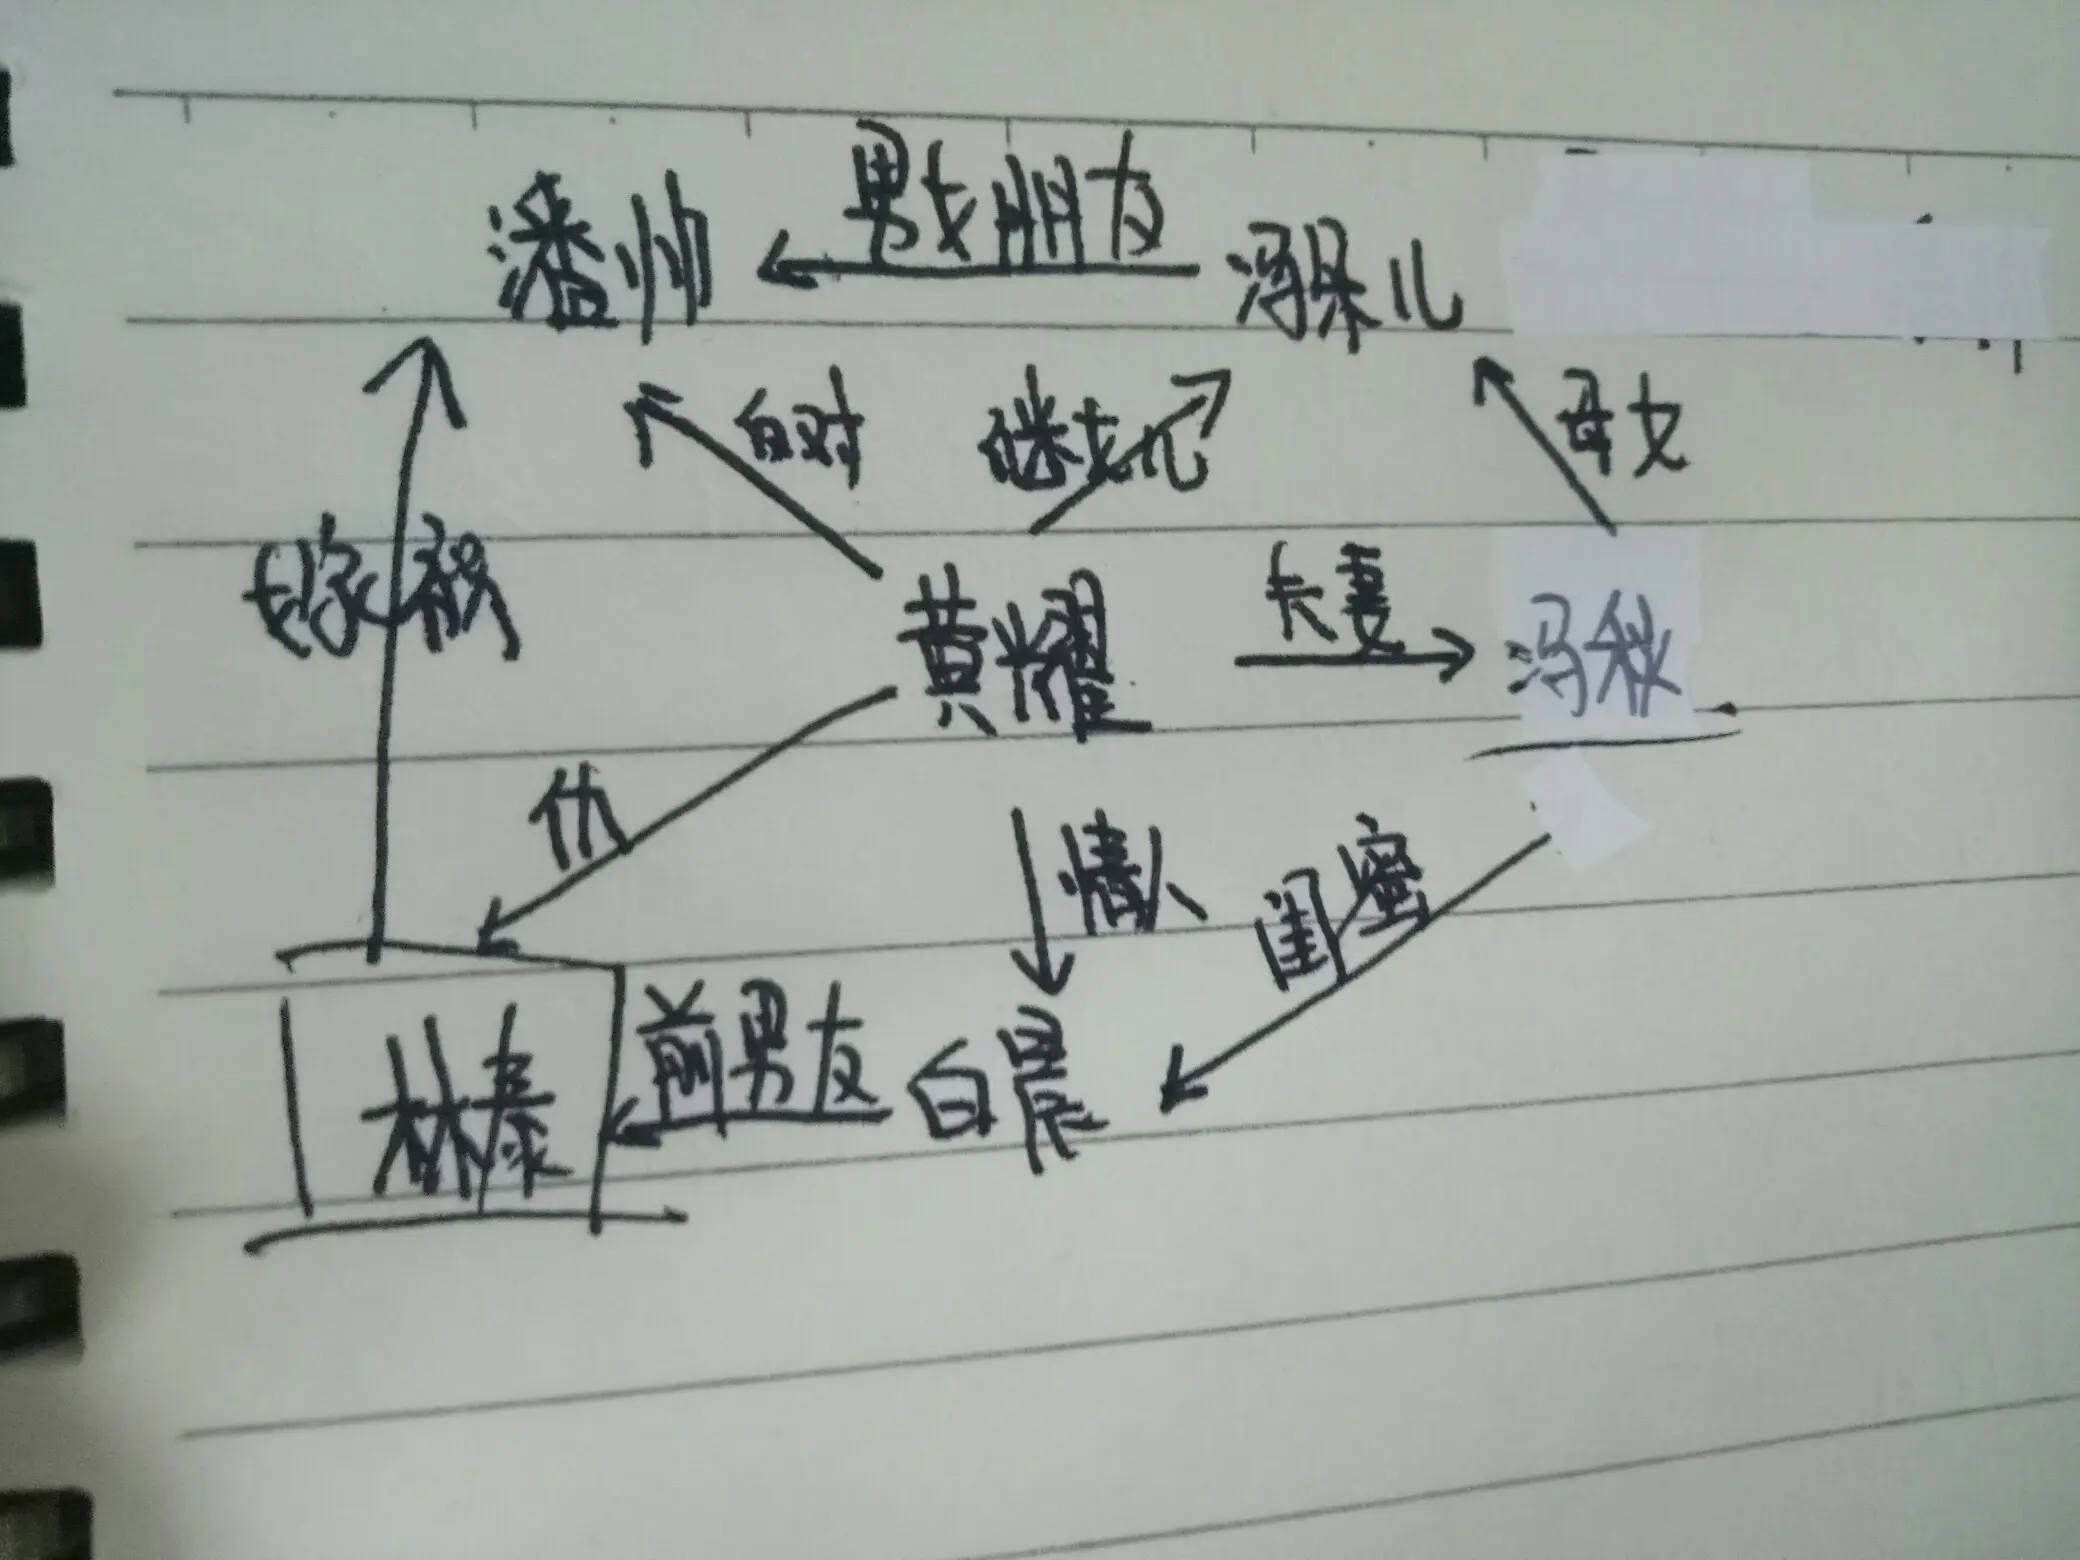 潘帅 男女朋友 冯果儿
反对 继女儿 母女
嫁祸
黄耀 夫妻 冯秋
仇 情人 闺蜜
林泰 前男友 白晨